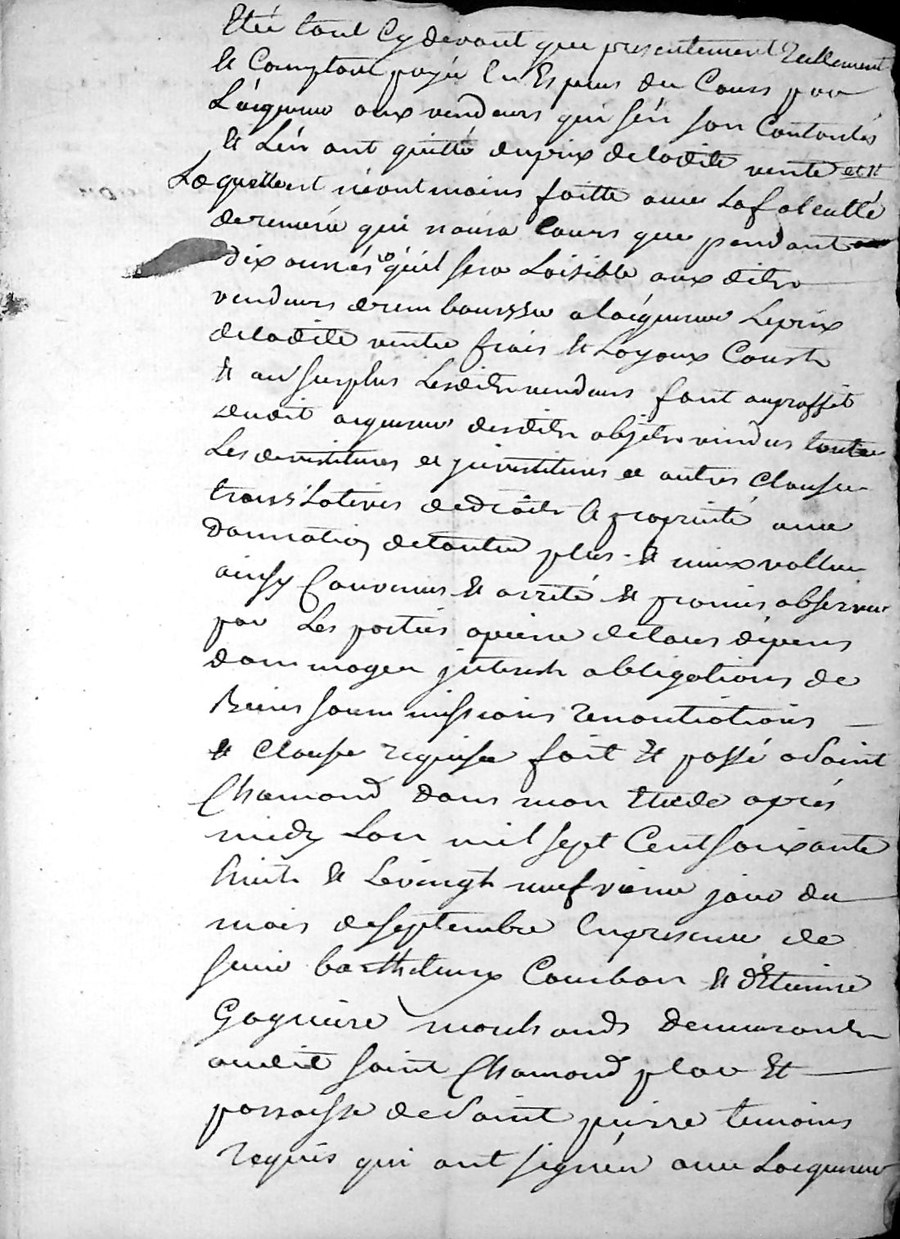 Eté tant Cy devant que presentement Reellement
Et Comptant payée En Especes du Cours par
L'aiquereur aux vendeurs qui s'en son Contentés
Et L'en ont quitté du prix de ladite vente
Laquelle est néantmoins faitte avec La facculté
de remeré qui n'aura Cours que pendant
dix années qu'il sera Loisible aux dits
vendeurs de rembourser a l'aiquereur Le prix
de ladite vente frais Et Loyaux Couts
Et au surplus Lesdits vendeurs font au proffit
dudit aiquereur desdits objets vendus toutes
Les devestitures et jnvestitures et autres Clauses
translatives de droits Et proprieté avec
Donnation de toutes plus Et mieux vallue
ainsy Convenus Et arrété Et promis observer
par Les parties a peine de tous dépens
dommages jnterests obligations de
Biens soummissions renontiations
Et Clause requise fait Et passé a Saint
Chamond dans mon Etude après
midy L'an mil sept Cent soixante
huit Et Le vingt neufvieme jour du
mois de septembre En presence de
sieur barthelemy Courbon Et d'Etienne
Gagniere marchands demeurants
audit saint Chamond place Et
parroisse de Saint pierre temoins
requis qui ont signéz avec L'aiquereur